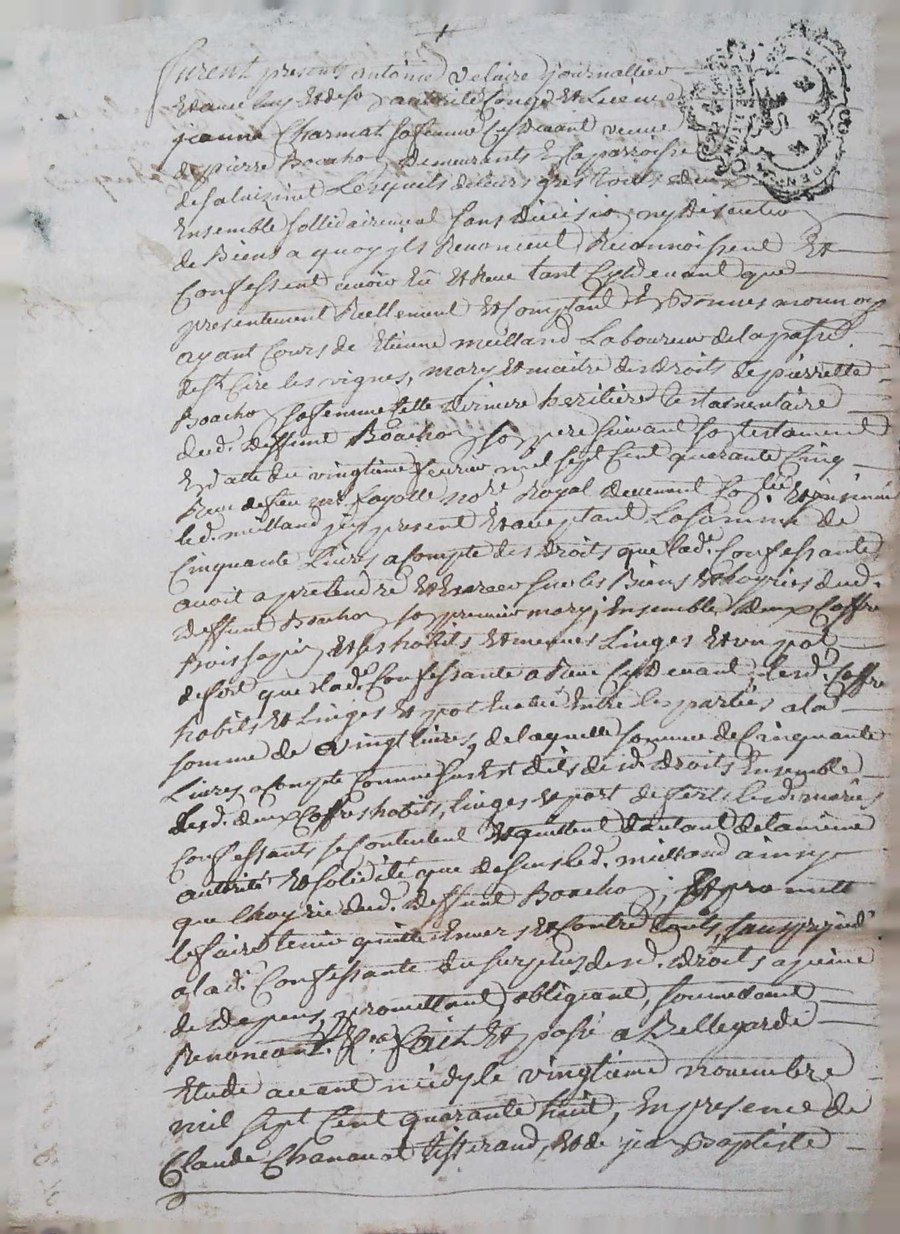 furent presents antoine Velaire journallier
Et avec luy Et de son autorité Congé Et Licence
jeanne Charmat sa femme Cy devant veuve
de pierre Boacho demeurants En la parroisse
de st alaizint Lesquels de leurs gres tous deux
Ensemble sollidairement sans division ny discution
de Biens a quoy ils Renoncent Reconnoissent Et
Confessent avoir Eu Et Reçu tant Cy devant que
presentement Reellement Et Comptant En Bonnes monnoy
ayant Cours de Etienne meilland Laboureur de la parse.
de st Cire les vignes, mary Et maitre des droits de pierrette
Boacho sa femme Celle derniere heritiere testamentaire
dud. deffunt Boacho son pere suivant son testament
En datte du vingtieme fevrier mil sept Cent quarante Cinq
Reçu de feu me fayolle nore Royal duement
led. meilland icy present Et acceptant La somme de
Cinquante Livres acompte des droits que lade. Confessante
avoit a pretendre Et Exercer sur les Biens Et hoyries dud.
deffunt Boacho son premier mary; Ensemble deux Coffre
Bois sapin Et ses habits Et menus Linges Et un pot
de fert que lade. Confessante a Reçu Cy devant, lesd. Coffre
habits Et Linges Et pot Evalué Entre les parties a la
somme de vingt livres, de laquelle somme de Cinquante
Livres acompte Comme sus Est dit desd. droits Ensemble
desd. deux Coffres habits, linges Et pot de fert lesd. mariés
Confessants se Contentent Et quittent d'autant de la même
autorité Et solidité que dessus led. meilland ainsy
que lhoyrie dud. deffunt Boacho; Et promett
le faire tenir quitte Envers Et Contre touts, sans prejud.
a lad. Confessante du surplus desd. droits a peine
de depens, promettant, obligeant, soumettant,
Renonçant, &ca fait Et passé a Bellegarde
Etude avant midy le vingtieme novembre
mil sept Cent quarante huit, En presence de
Claude Chanavat tisserand, Et de jean Baptiste